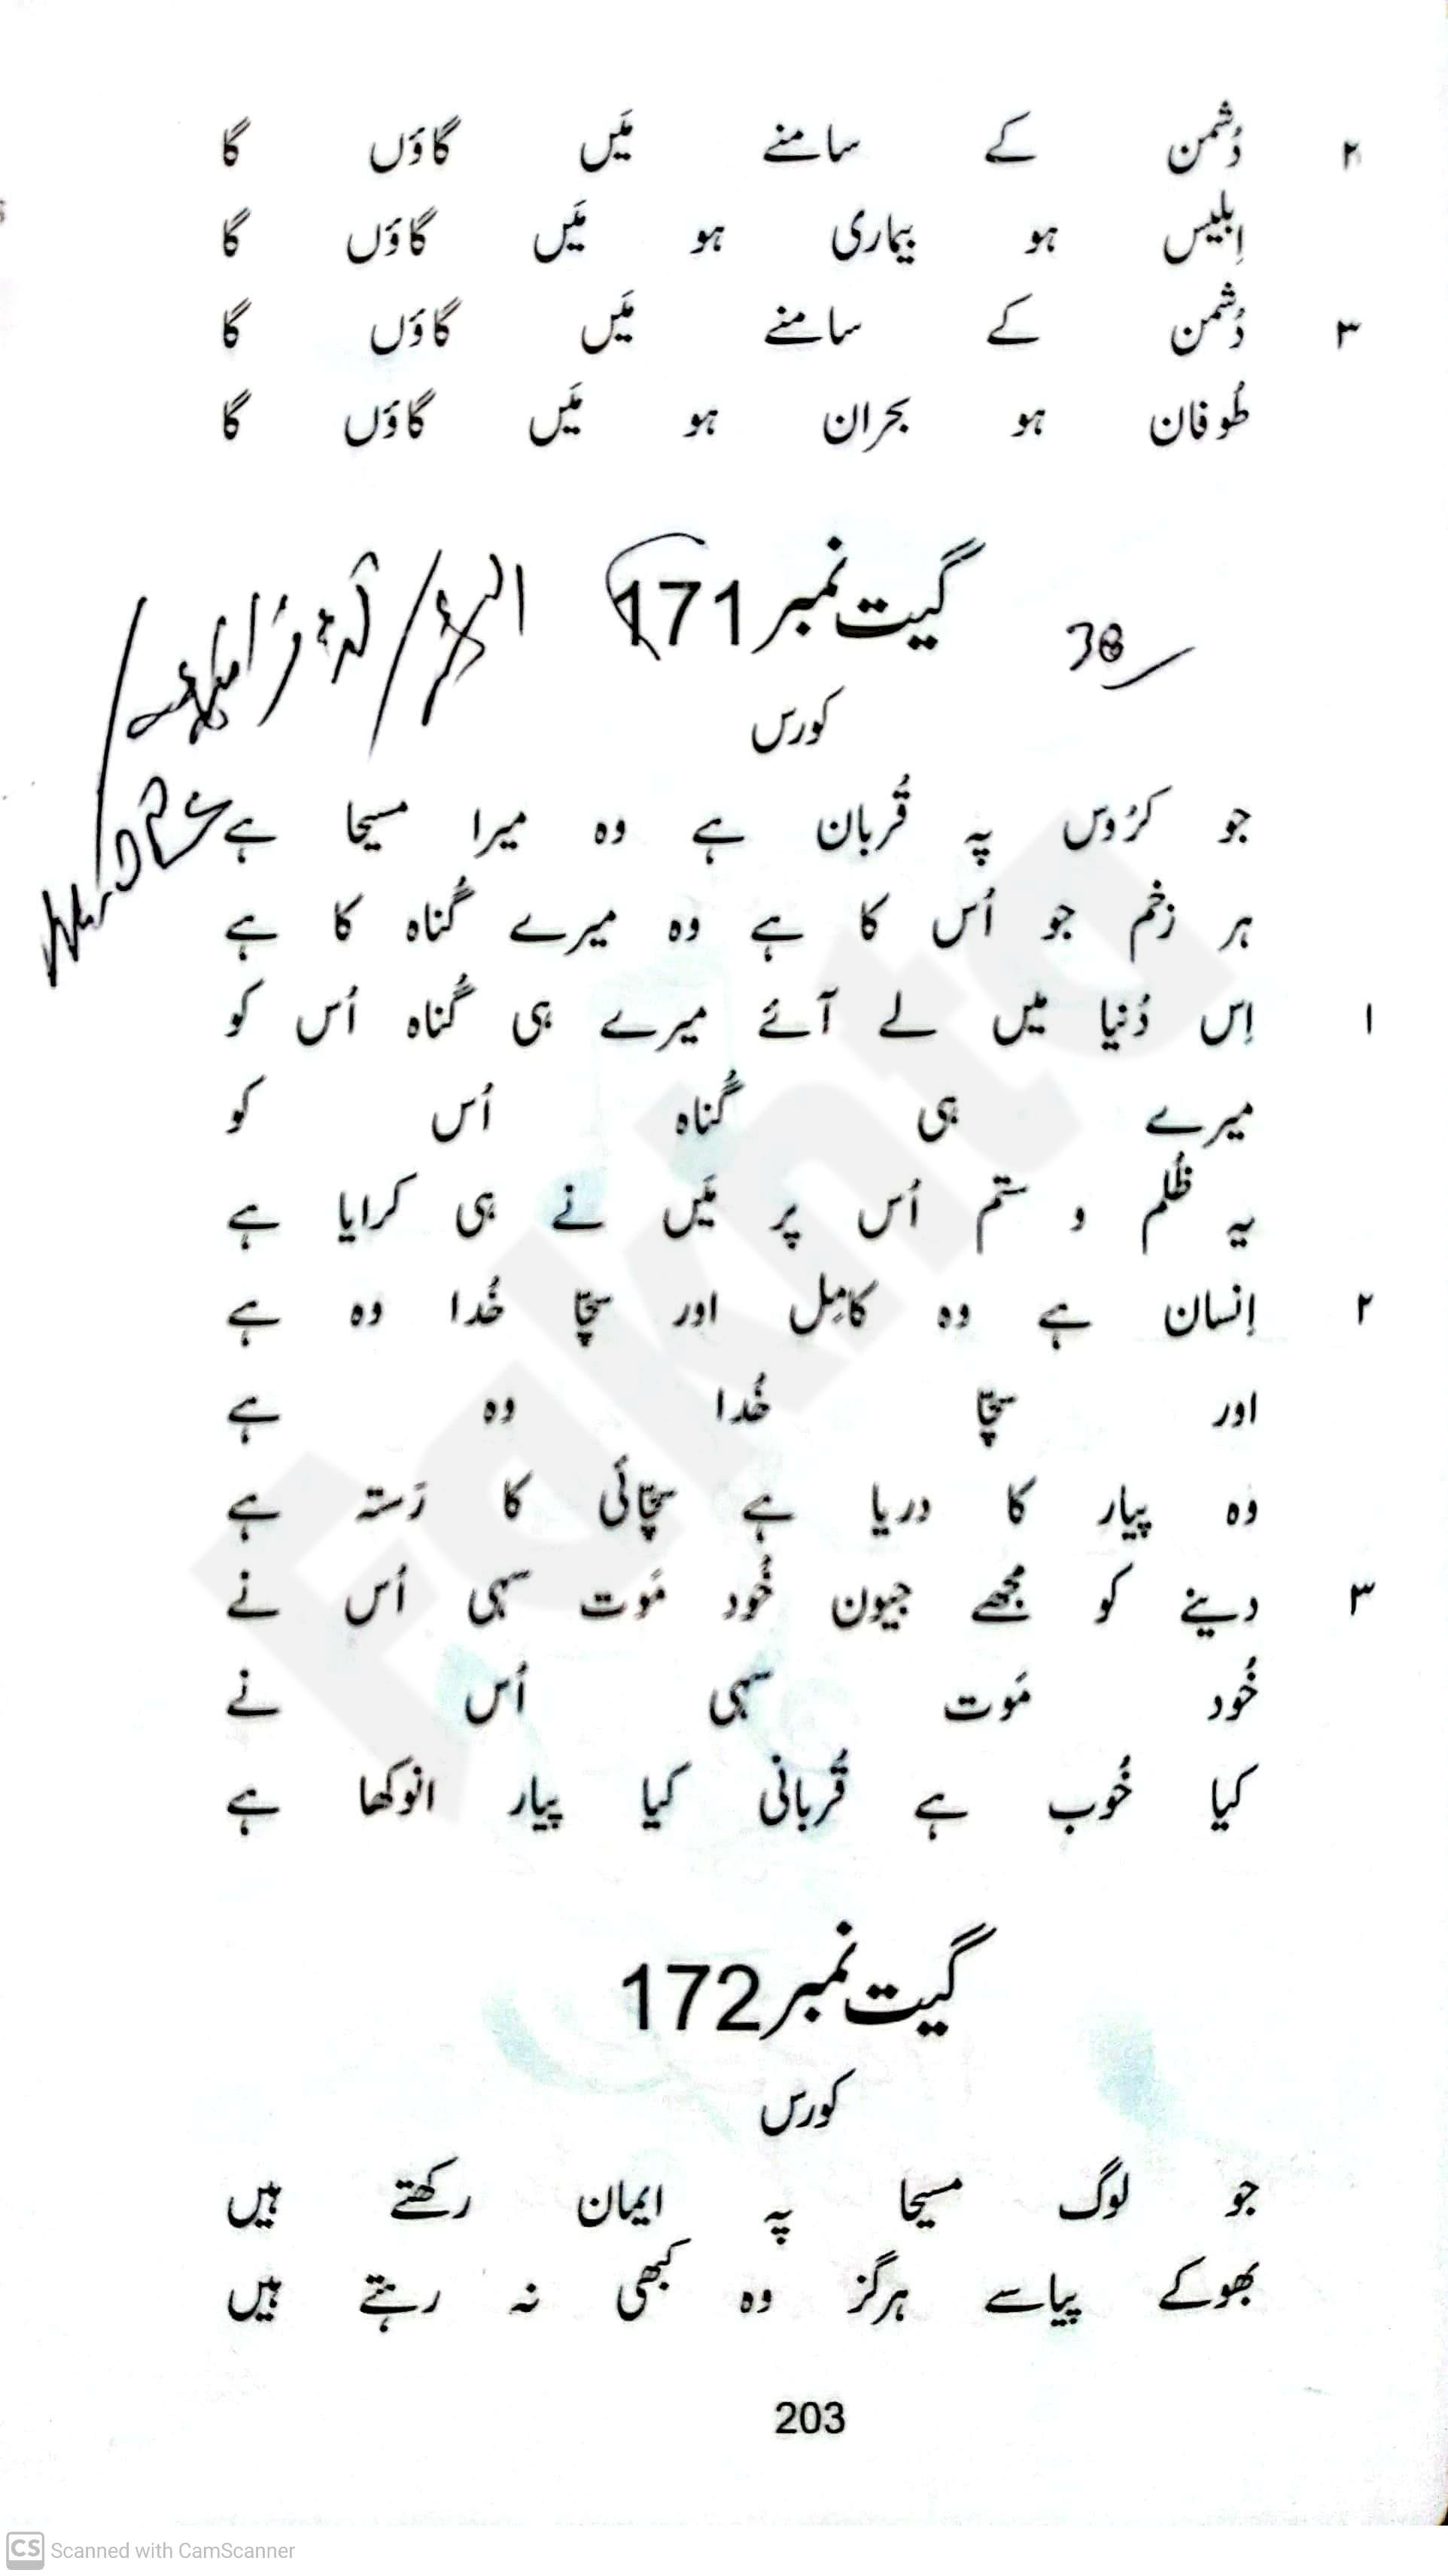 ۲ دُشمن کے سامنے مَیں گاؤں گا
اِبلیس ہو بیماری ہو مَیں گاؤں گا
۳ دُشمن کے سامنے مَیں گاؤں گا
طُوفان ہو بحران ہو مَیں گاؤں گا
38 گیت نمبر 171
کورس
جو کرُوس پہ قُربان ہے وہ میرا مسیحا ہے
ہر زخم جو اُس کا ہے وہ میرے گُناہ کا ہے
۱ اِس دُنیا میں لے آئے میرے ہی گُناہ اُس کو
میرے ہی گُناہ اُس کو
یہ ظُلم و ستم اُس پر مَیں نے ہی کرایا ہے
۲ اِنسان ہے وہ کامِل اور سچّا خُدا وہ ہے
اور سچّا خُدا وہ ہے
وہ پیار کا دریا ہے سچّائی کا رَستہ ہے
۳ دینے کو مجھے جیون خُود مَوت سہی اُس نے
خُود مَوت سہی اُس نے
کیا خُوب ہے قُربانی کیا پیار انوکھا ہے
گیت نمبر 172
کورس
جو لوگ مسیحا پہ ایمان رکھتے ہیں
بھوکے پیاسے ہرگز وہ کبھی نہ رہتے ہیں
203
Fakhta
CS Scanned with CamScanner